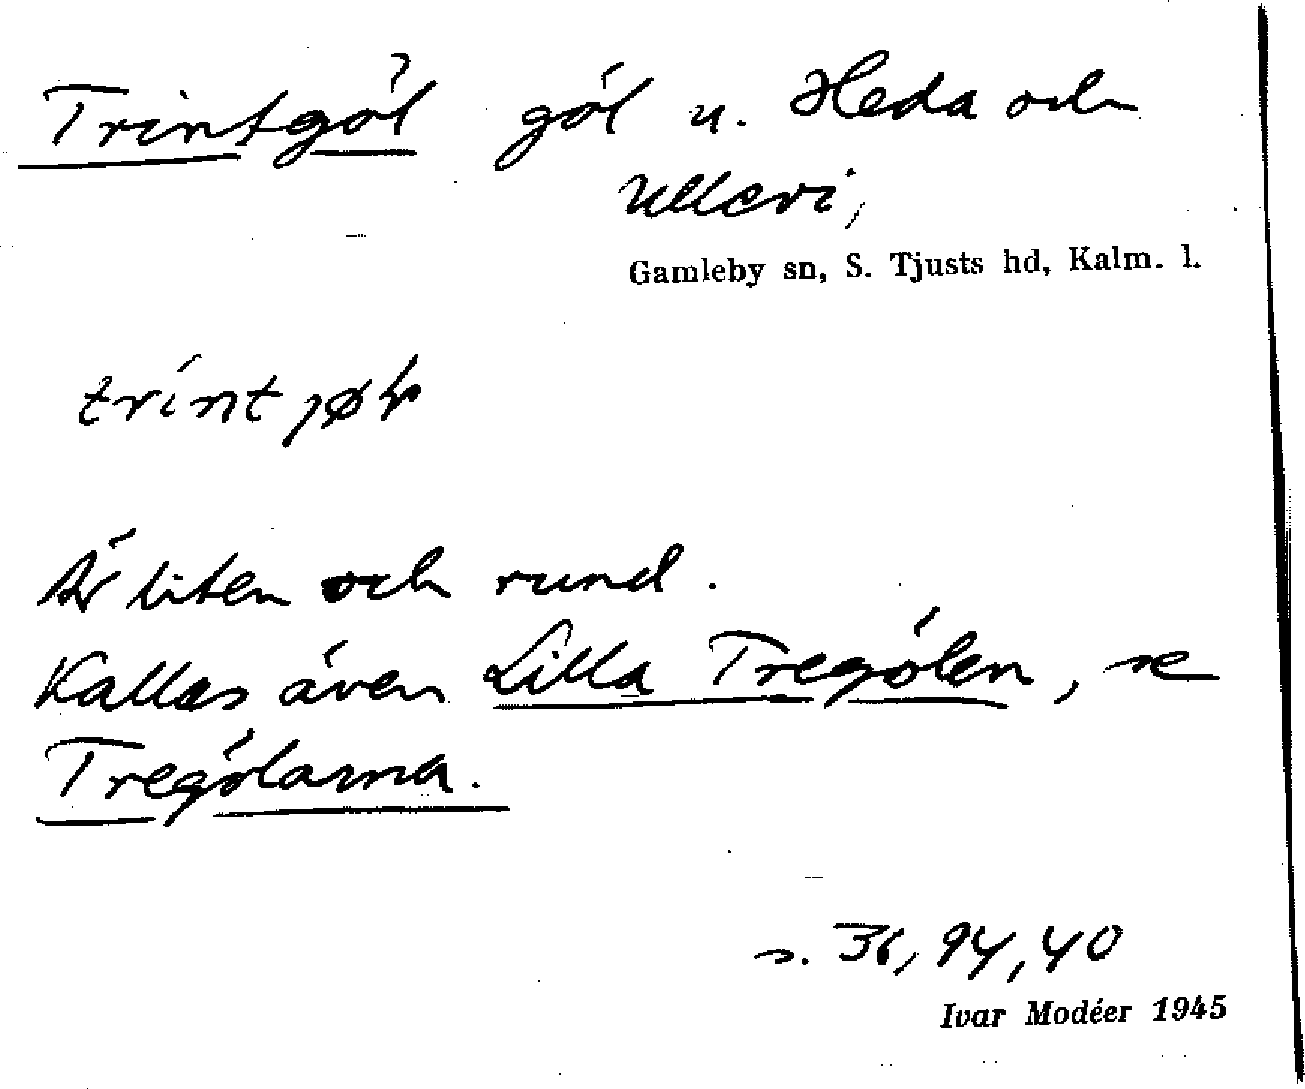 Trintgöl göl u. Heda och
Ullevi,
Gamleby sn, S. Tjusts hd, Kalm. l.
Är liten och rund.
Kallas även Lilla Tregölen, se
Tregölarna.
s. 36, 94, 40
Ivar Modéer 1945